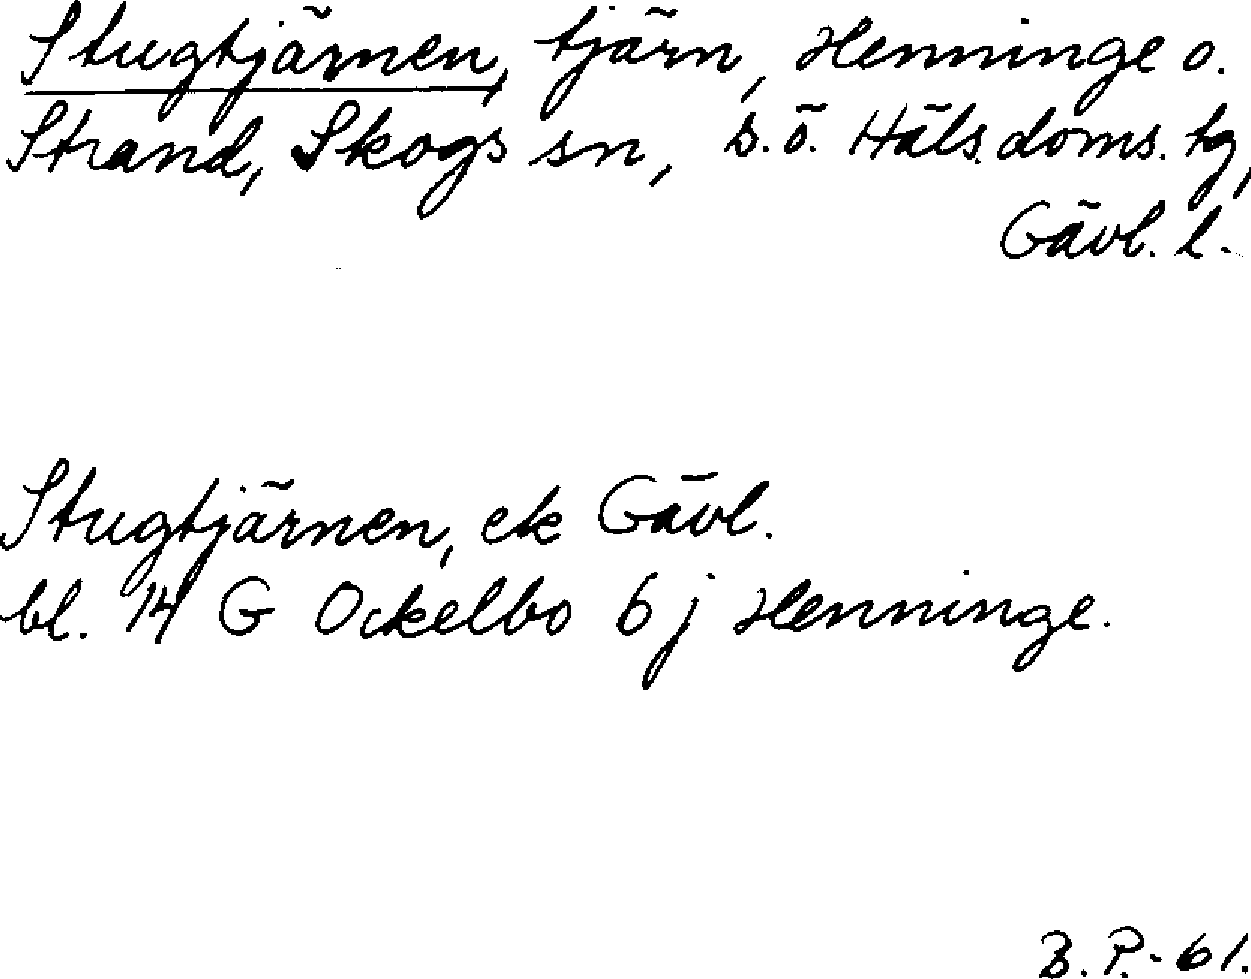 Stugtjärnen, tjärn, Henninge o.
Strand, Skogs sn, s.ö. Häls. doms. tg,
Gävl. l.
Stugtjärnen, ek Gävl.
bl. 14 G Ockelbo 6 j Henninge.
B. P. - 61.